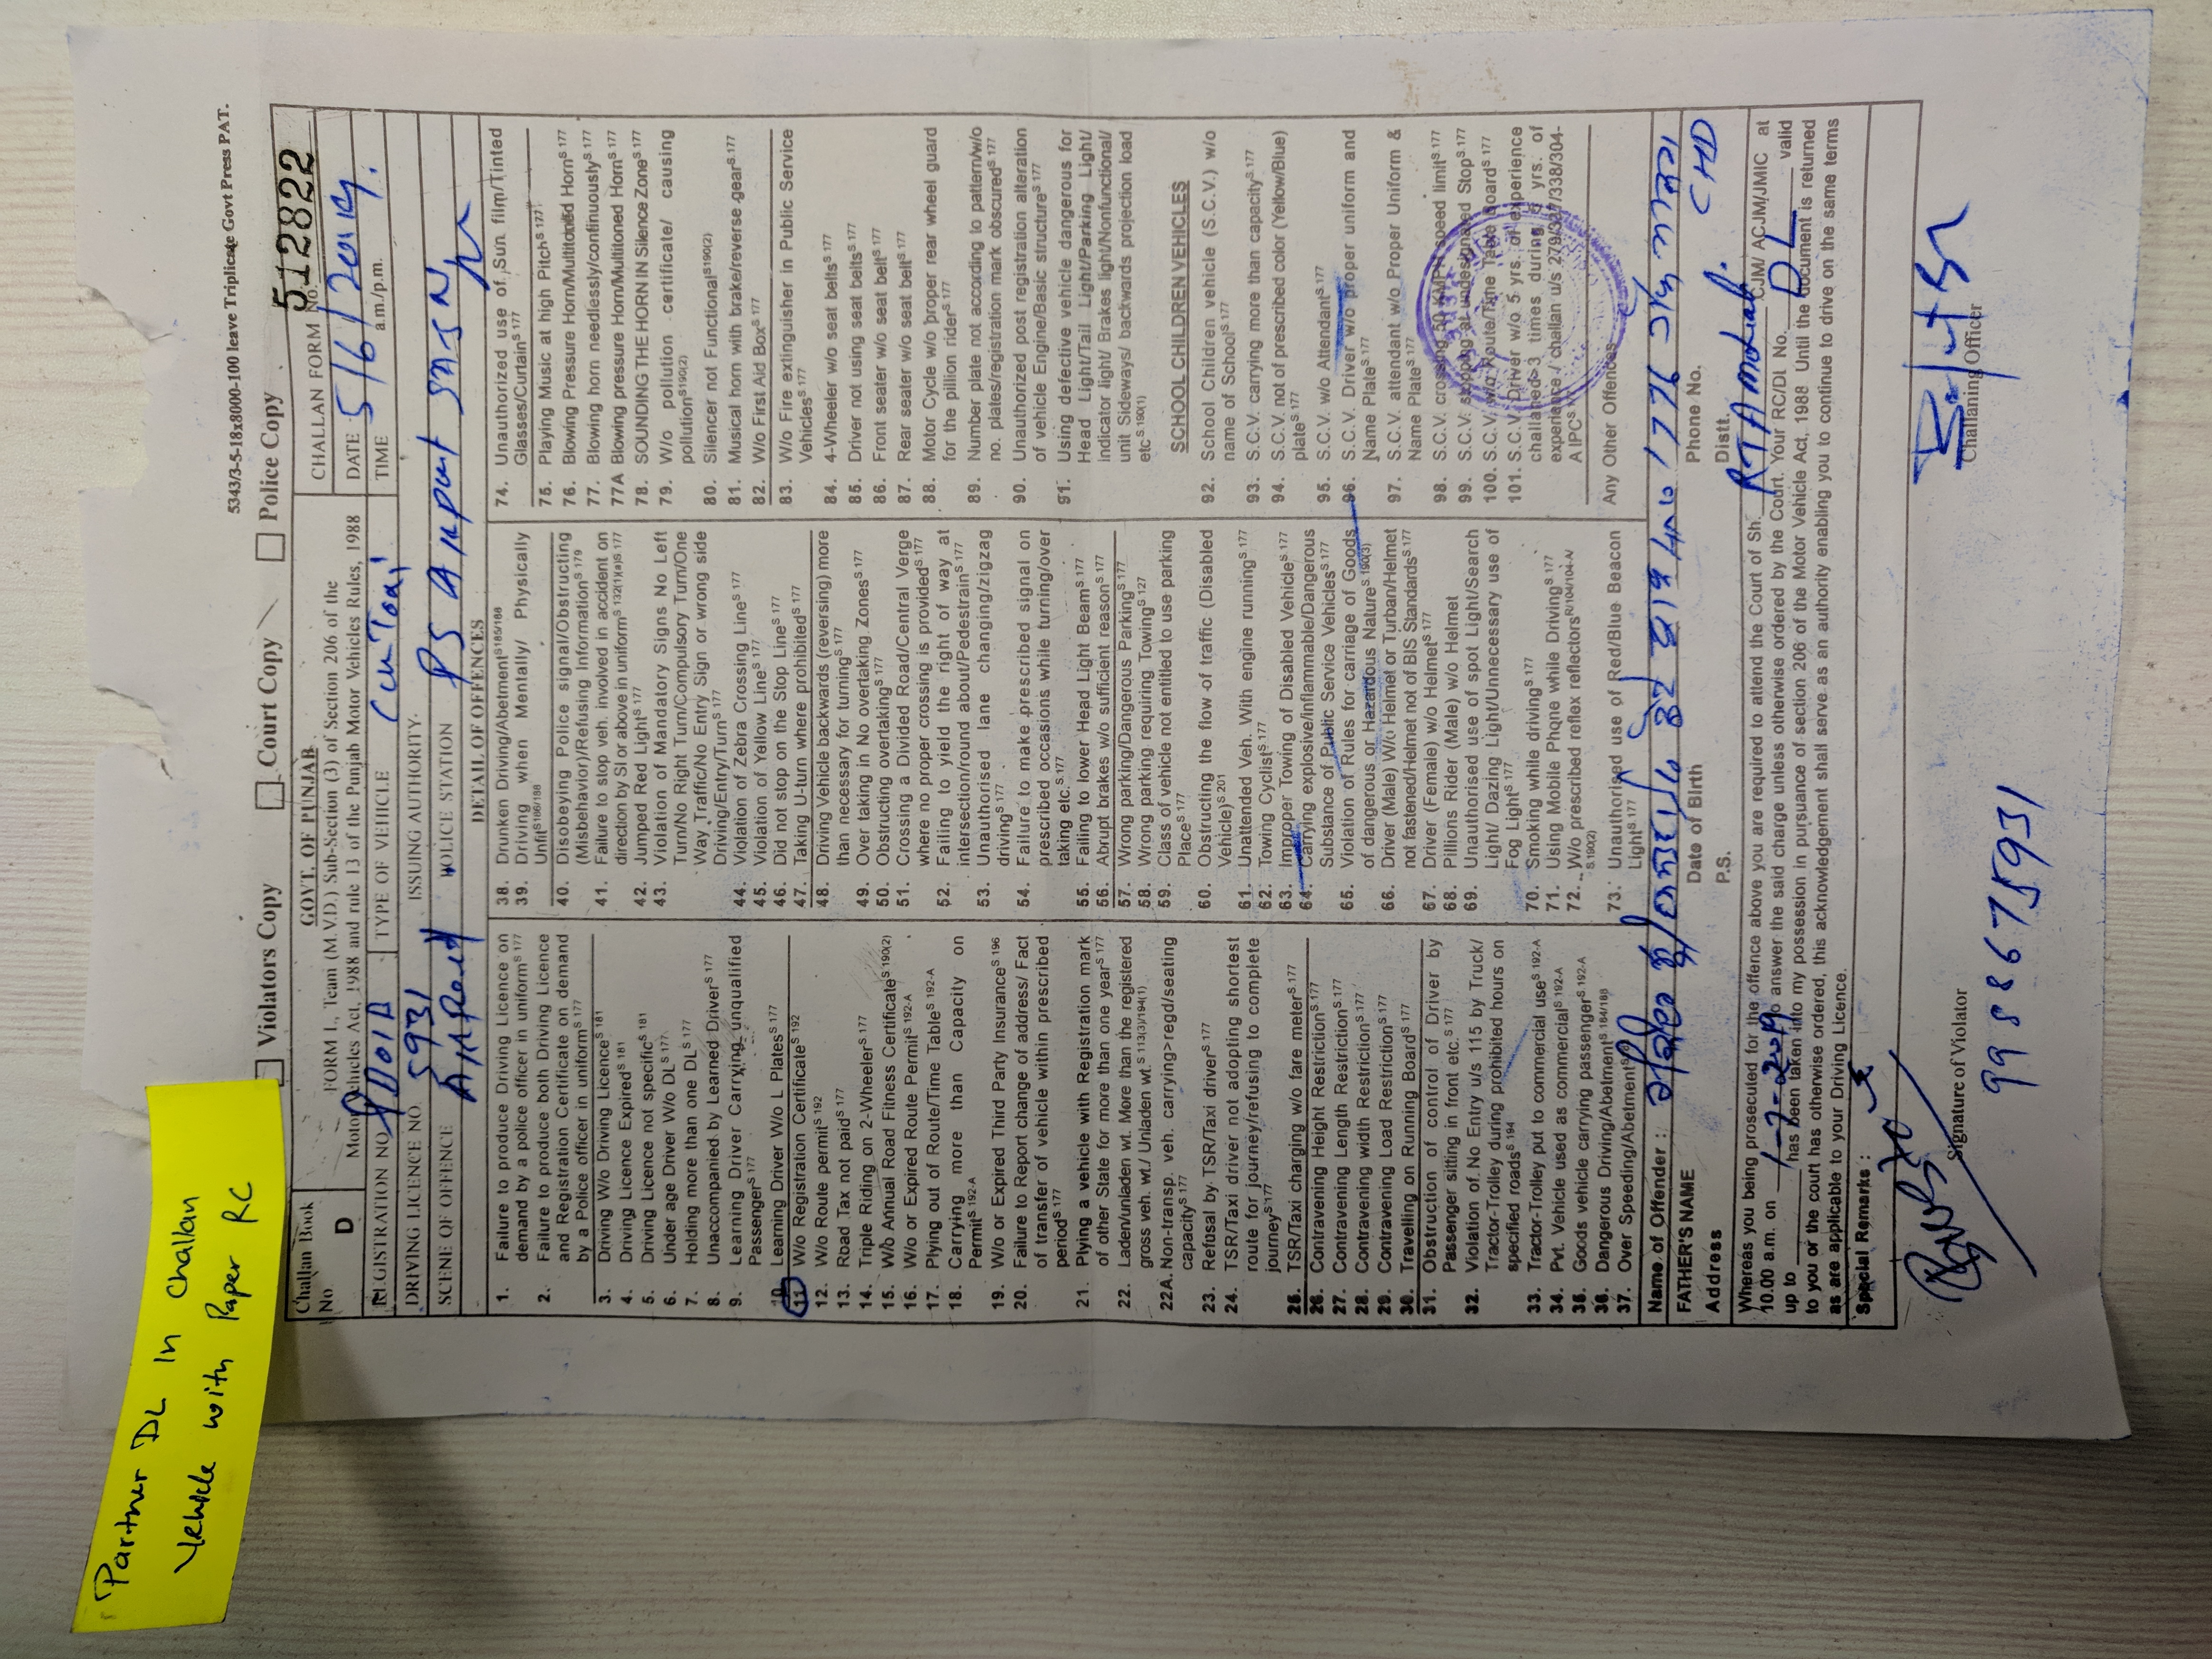 Partner DL In Challan
Vehicle with Paper RC
5343/3-5-18x8000-100 leave Triplicate Govt Press PAT.
Violators Copy
Court Copy
Police Copy
Challan Book No
D
GOVT. OF PUNJAB
FORM I., Team (M.V.D.) Sub-Section (3) of Section 206 of the
Motor Vehicles Act, 1988 and rule 13 of the Punjab Motor Vehicles Rules, 1988
CHALLAN FORM No. 512822
DATE 5/6/2019
REGISTRATION NO.
TYPE OF VEHICLE
TIME a.m./p.m.
DRIVING LICENCE NO. 5931
ISSUING AUTHORITY
SCENE OF OFFENCE
POLICE STATION PS
DETAIL OF OFFENCES
1. Failure to produce Driving Licence on
demand by a police officer in uniform S 177
2. Failure to produce both Driving Licence
and Registration Certificate on demand
by a Police officer in uniform S 177
3. Driving W/o Driving Licence S 181
4. Driving Licence Expired S 181
5. Driving Licence not specific S 181
6. Under age Driver W/o DL S 177
7. Holding more than one DL S 177
8. Unaccompanied by Learned Driver S 177
9. Learning Driver Carrying unqualified
Passenger S 177
10. Learning Driver W/o L Plates S 177
11. W/o Registration Certificate S 192
12. W/o Route permit S 192
13. Road Tax not paid S 177
14. Triple Riding on 2-Wheeler S 177
15. W/o Annual Road Fitness Certificate S 190(2)
16. W/o or Expired Route Permit S 192-A
17. Plying out of Route/Time Table S 192-A
18. Carrying more than Capacity on
Permit S 192-A
19. W/o or Expired Third Party Insurance S 196
20. Failure to Report change of address/ Fact
of transfer of vehicle within prescribed
period S 177
21. Plying a vehicle with Registration mark
of other State for more than one year S 177
22. Laden/unladen wt. More than the registered
gross veh. wt./ Unladen wt. S 113(3)/194(1)
22A. Non-transp. veh. carrying>regd/seating
capacity S 177
23. Refusal by TSR/Taxi driver S 177
24. TSR/Taxi driver not adopting shortest
route for journey/refusing to complete
journey S 177
25. TSR/Taxi charging w/o fare meter S 177
26. Contravening Height Restriction S 177
27. Contravening Length Restriction S 177
28. Contravening width Restriction S 177
29. Contravening Load Restriction S 177
30. Travelling on Running Board S 177
31. Obstruction of control of Driver by
Passenger sitting in front etc. S 177
32. Violation of No Entry u/s 115 by Truck/
Tractor-Trolley during prohibited hours on
specified roads S 194
33. Tractor-Trolley put to commercial use S 192-A
34. Pvt. Vehicle used as commercial S 192-A
35. Goods vehicle carrying passenger S 192-A
36. Dangerous Driving/Abetment S 184/188
37. Over Speeding/Abetment
38. Drunken Driving/Abetment S 185/188
39. Driving when Mentally/ Physically
Unfit S 186/188
40. Disobeying Police signal/Obstructing
(Misbehavior)/Refusing Information S 179
41. Failure to stop veh. involved in accident on
direction by SI or above in uniform S 132(1)(a)S 177
42. Jumped Red Light S 177
43. Violation of Mandatory Signs No Left
Turn/No Right Turn/Compulsory Turn/One
Way Traffic/No Entry Sign or wrong side
Driving/Entry/Turn S 177
44. Violation of Zebra Crossing Line S 177
45. Violation of Yellow Line S 177
46. Did not stop on the Stop Line S 177
47. Taking U-turn where prohibited S 177
48. Driving Vehicle backwards (reversing) more
than necessary for turning S 177
49. Over taking in No overtaking Zones S 177
50. Obstructing overtaking S 177
51. Crossing a Divided Road/Central Verge
where no proper crossing is provided S 177
52. Failing to yield the right of way at
intersection/round about/Pedestrain S 177
53. Unauthorised lane changing/zigzag
driving S 177
54. Failure to make prescribed signal on
prescribed occasions while turning/over
taking etc. S 177
55. Failing to lower Head Light Beam S 177
56. Abrupt brakes w/o sufficient reason S 177
57. Wrong parking/Dangerous Parking S 177
58. Wrong parking requiring Towing S 127
59. Class of vehicle not entitled to use parking
Place S 177
60. Obstructing the flow of traffic (Disabled
Vehicle) S 201
61. Unattended Veh. With engine running S 177
62. Towing Cyclist S 177
63. Improper Towing of Disabled Vehicle S 177
64. Carrying explosive/Inflammable/Dangerous
Substance of Public Service Vehicles S 177
65. Violation of Rules for carriage of Goods
of dangerous or Hazardous Nature S 190(3)
66. Driver (Male) W/o Helmet or Turban/Helmet
not fastened/Helmet not of BIS Standards S 177
67. Driver (Female) w/o Helmet S 177
68. Pillions Rider (Male) w/o Helmet
69. Unauthorised use of spot Light/Search
Light/ Dazing Light/Unnecessary use of
Fog Light S 177
70. Smoking while driving S 177
71. Using Mobile Phone while Driving S 177
72. W/o prescribed reflex reflectors R/104/104-N
S.190(2)
73. Unauthorised use of Red/Blue Beacon
Light S 177
74. Unauthorized use of Sun film/Tinted
Glasses/Curtain S 177
75. Playing Music at high Pitch S 177
76. Blowing Pressure Horn/Multitoned Horn S 177
77. Blowing horn needlessly/continuously S 177
77A Blowing pressure Horn/Multitoned Horn S 177
78. SOUNDING THE HORN IN Silence Zone S 177
79. W/o pollution certificate/ causing
pollution S190(2)
80. Silencer not Functional S190(2)
81. Musical horn with brake/reverse gear S 177
82. W/o First Aid Box S 177
83. W/o Fire extinguisher in Public Service
Vehicles S 177
84. 4-Wheeler w/o seat belts S 177
85. Driver not using seat belts S 177
86. Front seater w/o seat belt S 177
87. Rear seater w/o seat belt S 177
88. Motor Cycle w/o proper rear wheel guard
for the pillion rider S 177
89. Number plate not according to pattern/w/o
no. plates/registration mark obscured S 177
90. Unauthorized post registration alteration
of vehicle Engine/Basic structure S 177
91. Using defective vehicle dangerous for
Head Light/Tail Light/Parking Light/
indicator light/ Brakes light/Nonfunctional/
unit Sideways/ backwards projection load
etc S 190(1)
SCHOOL CHILDREN VEHICLES
92. School Children vehicle (S.C.V.) w/o
name of School S 177
93. S.C.V. carrying more than capacity S 177
94. S.C.V. not of prescribed color (Yellow/Blue)
plate S 177
95. S.C.V. w/o Attendant S 177
96. S.C.V. Driver w/o proper uniform and
Name Plate S 177
97. S.C.V. attendant w/o Proper Uniform &
Name Plate S 177
98. S.C.V. crossing 50 KMPH speed limit S 177
99. S.C.V. stopping at undesignated Stop S 177
100. S.C.V. w/o Route/Time Table Board S 177
101. S.C.V. Driver w/o 5 yrs. of experience
challaned 3 times during 5 yrs. of
experience / challan u/s 279/337/338/304-
A IPC S 177
Any Other Offences
Name of Offender :
FATHER'S NAME
Date of Birth
Phone No.
Address
P.S.
Distt. CHD
Whereas you being prosecuted for the offence above you are required to attend the Court of Sh. RTA Mohali CJM/ ACJM/JMIC at
10.00 a.m. on 1-7-2019 to answer the said charge unless otherwise ordered by the Court. Your RC/Dl No. DL valid
up to has been taken into my possession in pursuance of section 206 of the Motor Vehicle Act, 1988 Until the document is returned
to you or the court has otherwise ordered, this acknowledgement shall serve as an authority enabling you to continue to drive on the same terms
as are applicable to your Driving Licence.
Special Remarks :
Signature of Violator
Challaning Officer
9988675931